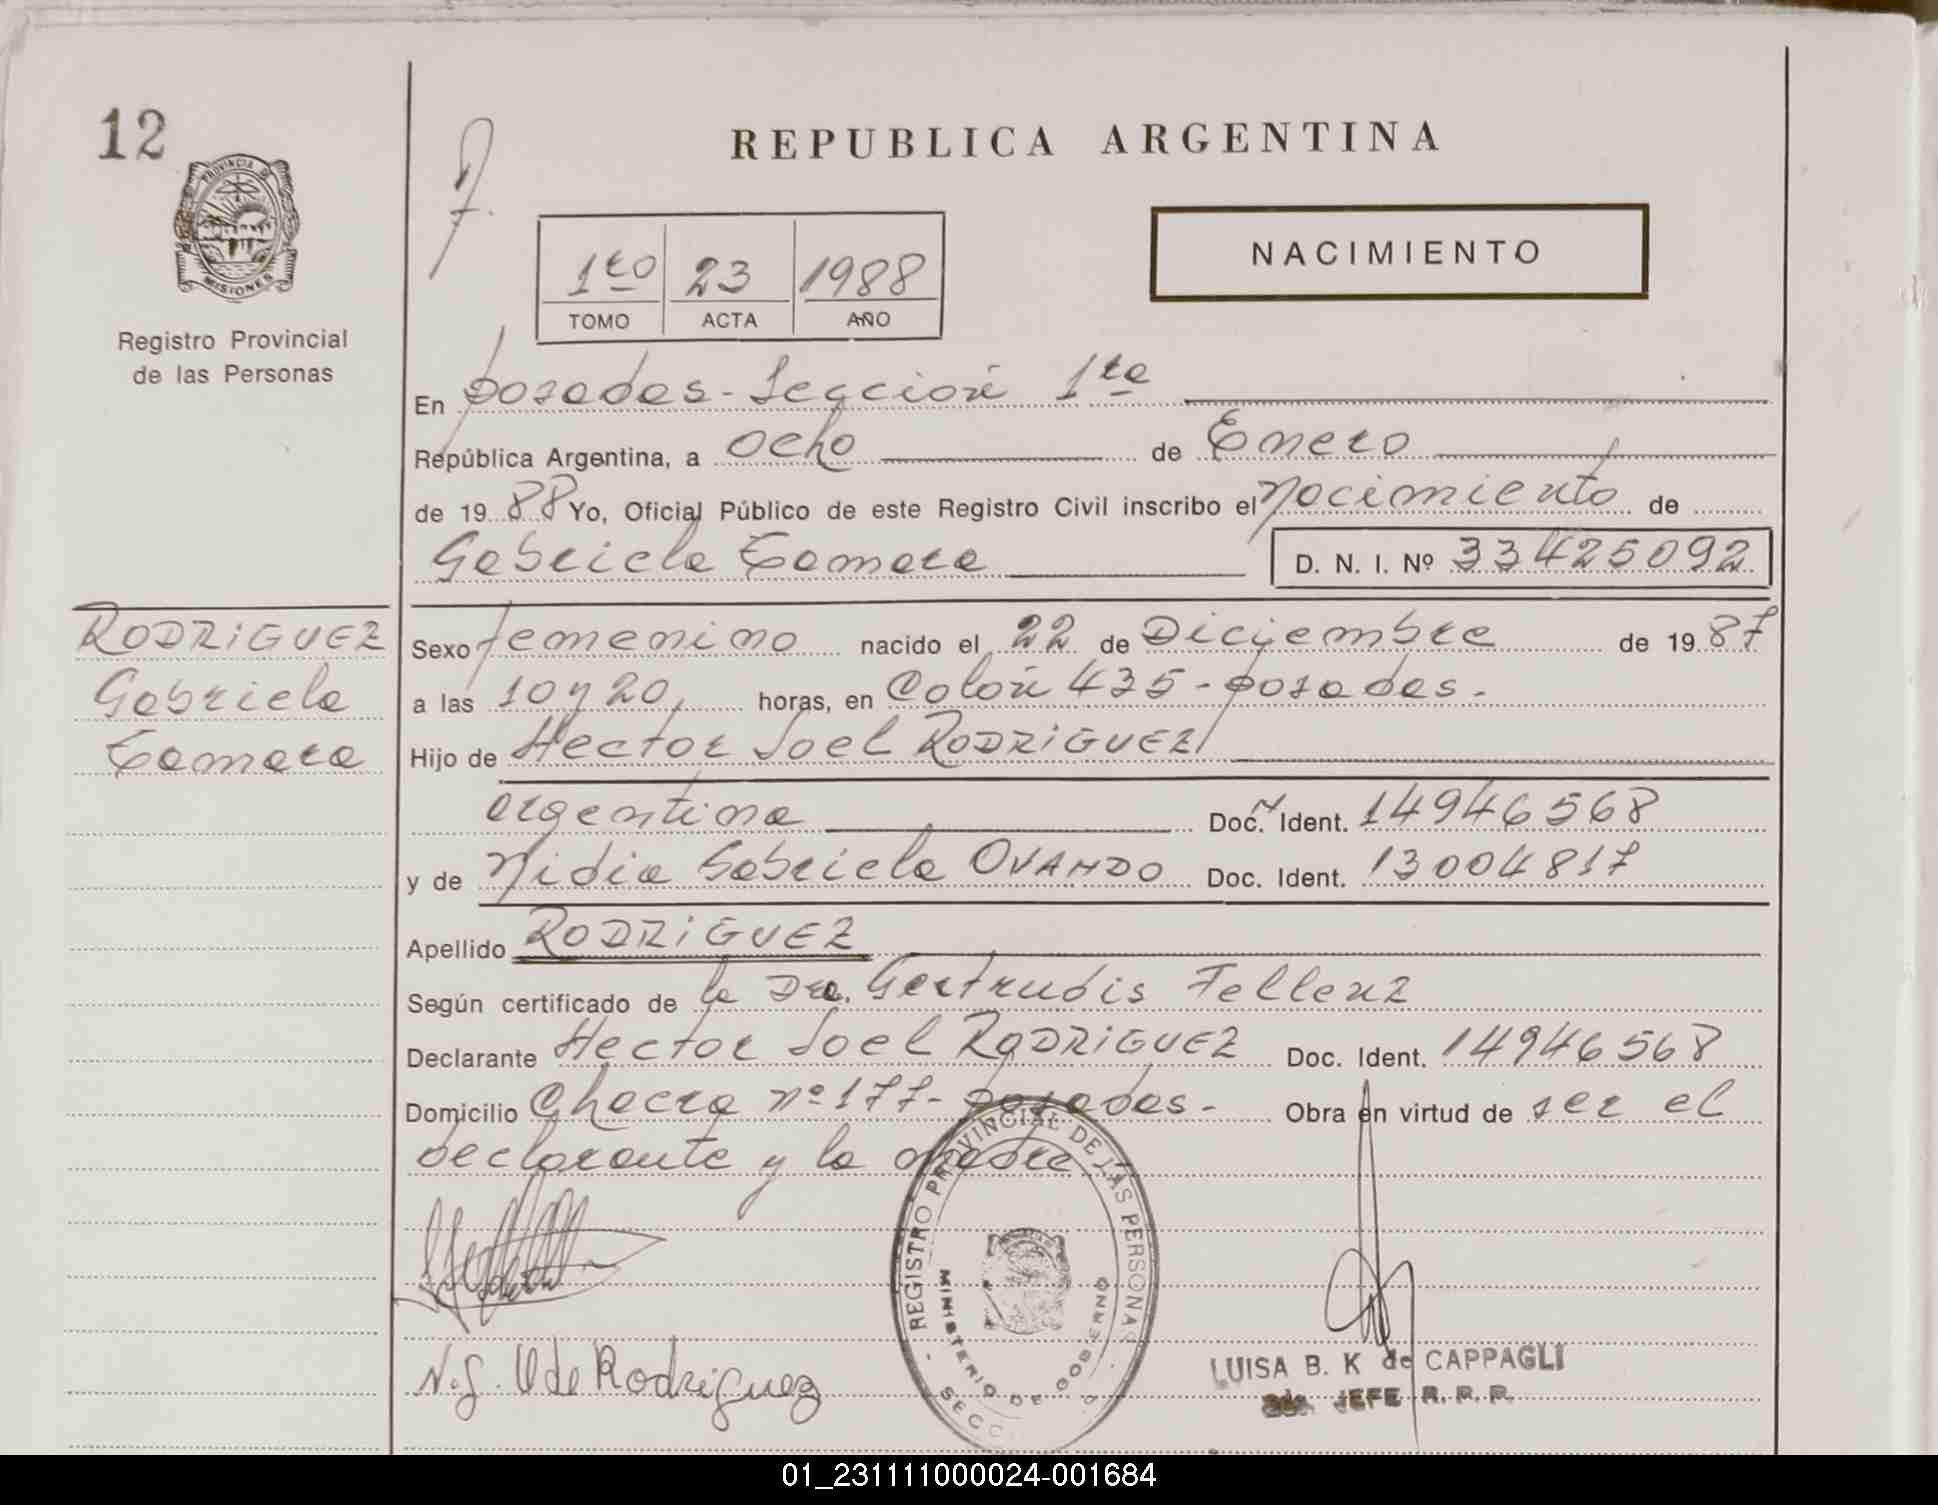 12
REPUBLICA ARGENTINA
PROVINCIA DE
MISIONES
Registro Provincial
de las Personas
1ro 23 1988
TOMO ACTA AÑO
NACIMIENTO
En posadas - Sección 1ra
República Argentina, a Ocho de Enero
de 1988 Yo, Oficial Público de este Registro Civil inscribo el Nacimiento de
Gabriela Tamara D. N. I. Nº 33425092
RODRiGUEZ
Gabriela
Tamara
Sexo femenino nacido el 22 de Diciembre de 1987
a las 10 y 20, horas, en Colón 435 - posadas.
Hijo de Hector Joel RODRiGUEZ
argentina Doc. Ident. 14946568
y de Nidia Gabriela OVANDO Doc. Ident. 13004817
Apellido RODRiGUEZ
Según certificado de la Dra. Gertrudis Fellenz
Declarante Hector Joel RODRiGUEZ Doc. Ident. 14946568
Domicilio Chacra nº 177 - posadas - Obra en virtud de ser el
declarante y la madre
REGISTRO PROVINCIAL DE LAS PERSONAS
MINISTERIO DE GOBIERNO
SECC
N.G. O de Rodriguez
LUISA B. K de CAPPAGLI
JEFE R. P. P.
01_231111000024-001684